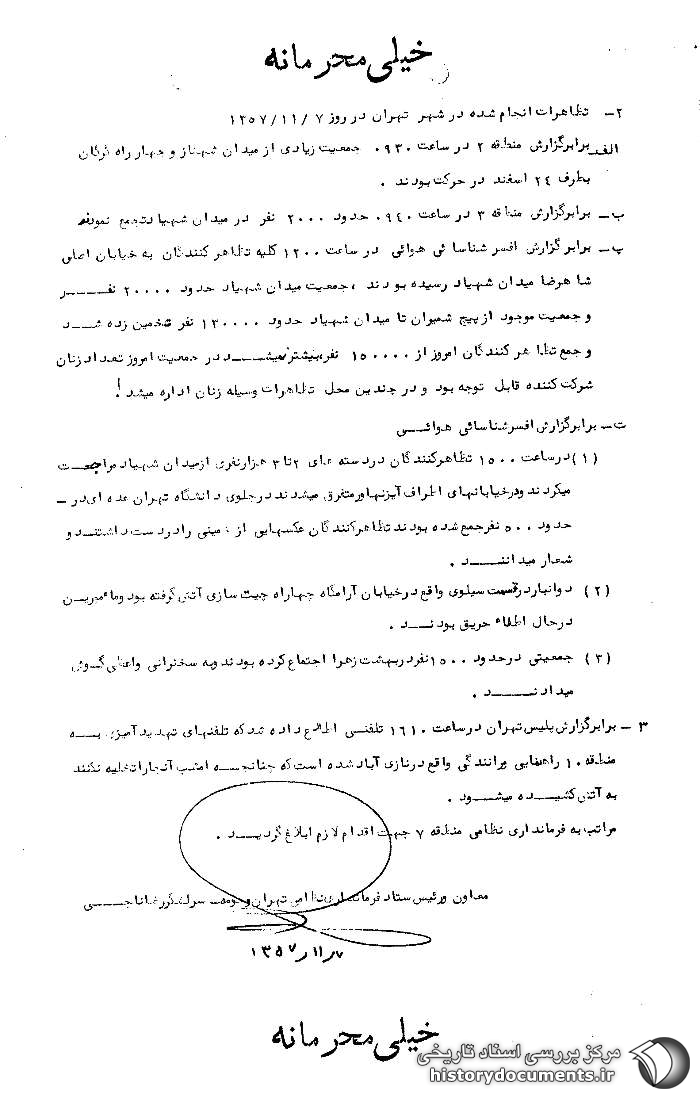 خیلی محرمانه
۲- تظاهرات انجام شده در شهر تهران در روز ۷/۱۱/۱۳۵۷
الف- برابرگزارش منطقه ۲ در ساعت ۰۹۳۰ جمعیت زیادی از میدان شهناز و چهار راه گرگان
بطرف ۲۴ اسفند در حرکت بودند .
ب- برابرگزارش منطقه ۳ در ساعت ۰۹۴۰ حدود ۲۰۰۰ نفر در میدان شهیاد تجمع نمودند
پ- برابر گزارش افسر شناسائی هوائی در ساعت ۱۲۰۰ کلیه تظاهر کنندگان به خیابان اصلی
شاهرضا میدان شهیاد رسیده بودند ، جمعیت میدان شهیاد حدود ۲۰۰۰۰ نفر
و جمعیت موجود از پیچ شمیران تا میدان شهیاد حدود ۱۳۰۰۰۰ نفر تخمین زده شد
و جمع تظاهر کنندگان امروز از ۱۵۰۰۰۰ نفر بیشتر میشد در جمعیت امروز تعداد زنان
شرکت کننده قابل توجه بود و در چندین محل تظاهرات وسیله زنان اداره میشد !
ت- برابرگزارش افسر شناسائی هوائی
(۱) در ساعت ۱۵۰۰ تظاهرکنندگان در دسته های ۲ تا ۳ هزار نفری از میدان شهیاد مراجعت
میکردند و در خیابانهای اطراف آیزنهاور متفرق میشدند در جلوی دانشگاه تهران عده ای در -
حدود ۵۰۰ نفر جمع شده بودند تظاهرکنندگان عکسهایی از خمینی را در دست داشتند و
شعار میدادند .
(۲) دو انبار در قسمت سیلوی واقع در خیابان آرامگاه چهارراه چیت سازی آتش گرفته بود و مأمورین
در حال اطفاء حریق بودند .
(۳) جمعیتی در حدود ۱۵۰۰ نفر در بهشت زهرا اجتماع کرده بودند و به سخنرانی واعظی گوش
میدادند .
۳- برابرگزارش پلیس تهران در ساعت ۱۶۱۰ تلفنی اطلاع داده شد که تلفنهای تهدید آمیزی به
منطقه ۱۰ راهنمایی و رانندگی واقع در نازی آباد شده است که چنانچه امشب آنجا را تخلیه نکنند
به آتش کشیده میشود .
مراتب به فرمانداری نظامی منطقه ۷ جهت اقدام لازم ابلاغ گردید .
معاون و رئیس ستاد فرمانداری نظامی تهران و حومه- سرلشگر رضا ناجی
۱۳۵۷/۱۱/۷
خیلی محرمانه
مرکز بررسی اسناد تاریخی
historydocuments.ir